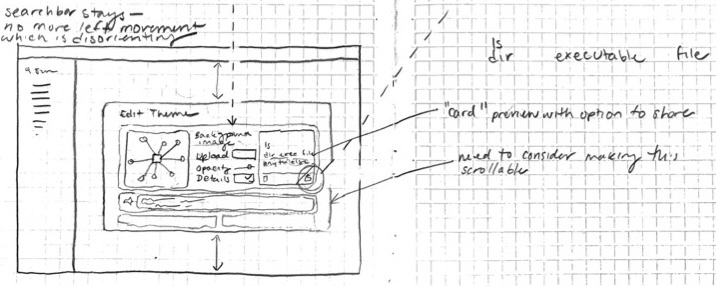 searchbar stays—
no more left movement
which is disorienting
Edit Theme
Background
image
Upload
Opacity
Details
ls
dir exec file
ls
dir executable file
"card" preview with option to share
need to consider making this
scrollable